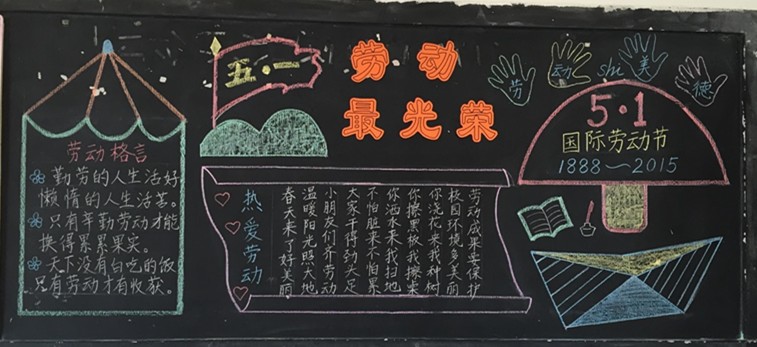 劳动格言
勤劳的人生活好
懒惰的人生活苦。
只有辛勤劳动才能
换得累累果实。
天下没有白吃的饭
只有劳动才有收获。
五·一
劳动
最光荣
热爱劳动
春天来了好美丽
温暖阳光照大地
小朋友们齐劳动
大家干得劲天足
不怕脏来不怕累
你洒水来我扫地
你擦黑板我擦桌
你浇花来我种树
校园环境多美丽
劳动成果要保护
劳动shi美德
5·1
国际劳动节
1888～2015